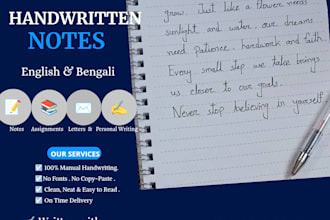 HANDWRITTEN
NOTES
English & Bengali
Notes
Assignments
Letters &
Personal Writing
OUR SERVICES
100% Manual Handwriting.
No Fonts . No Copy-Paste .
Clean, Neat & Easy to Read .
On Time Delivery
grow. Just like a flower needs
sunlight and water, our dreams
need patience, hardwork and faith
Every small step we take brings
us closer to our goals.
Never stop believing in yourself